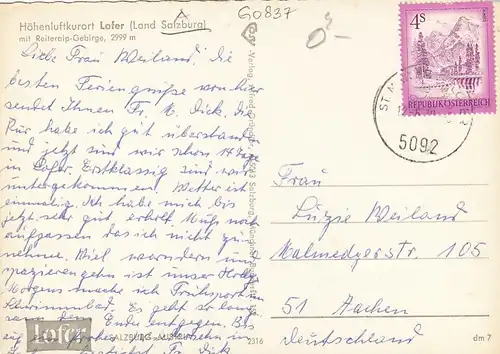 Höhenluftkurort Lofer (Land Salzburg)
mit Reiteralp-Gebirge, 2999 m
G0837
Liebe Frau Weiland, die
besten Feriengrüße von hier
sendet Ihnen Fr. M. Dick. Die
Kur habe ich gut überstanden
und jetzt sind wir schon 14 Tage
in Lofer. Erstklassig sind wir
untergekommen. Wetter ist
einmalig. Ich habe mich bis
jetzt sehr gut erholt. Muß noch
aufpassen das ich nicht zu
nehme. Viel wandern und
spazierengehn ist unser Hobby
Morgens mache ich Frühsport im
Schwimmbad. Es geht so lang
dem Ende entgegen. Bis
Fr. Dick
Lofer
SALZBURG-AUSTRIA
2316
dm 7
4S
REPUBLIK ÖSTERREICH
ST. M
5092
Frau
Luzie Weiland
Malmedyerstr. 105
51 Aachen
Deutschland